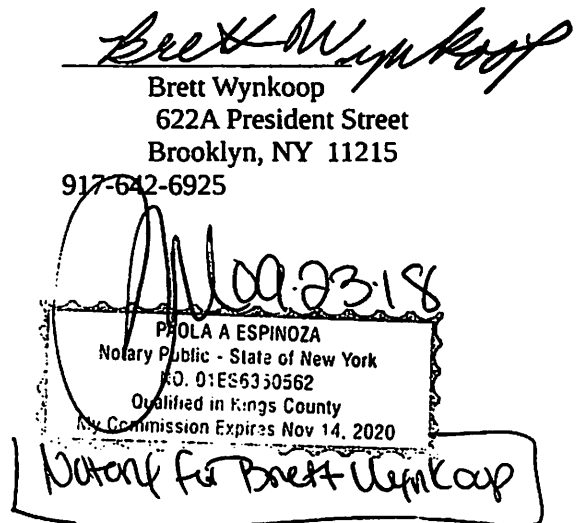 Brett Wynkoop
Brett Wynkoop
622A President Street
Brooklyn, NY 11215
917-642-6925
09.23.18
PAOLA A ESPINOZA
Notary Public - State of New York
NO. 01ES6350562
Qualified in Kings County
My Commission Expires Nov 14, 2020
Notary for Brett Wynkoop